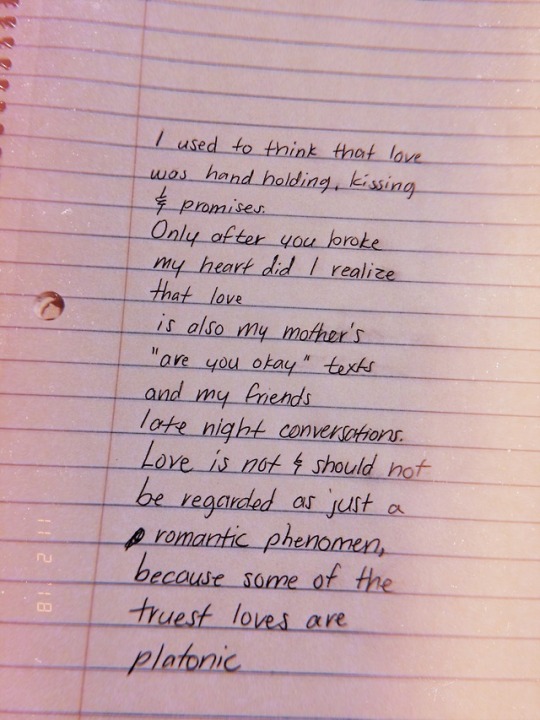 I used to think that love
was hand holding, kissing
& promises.
Only after you broke
my heart did I realize
that love
is also my mother's
"are you okay" texts
and my friends
late night conversations.
Love is not & should not
be regarded as just a
romantic phenomen,
because some of the
truest loves are
platonic
11 2 '18